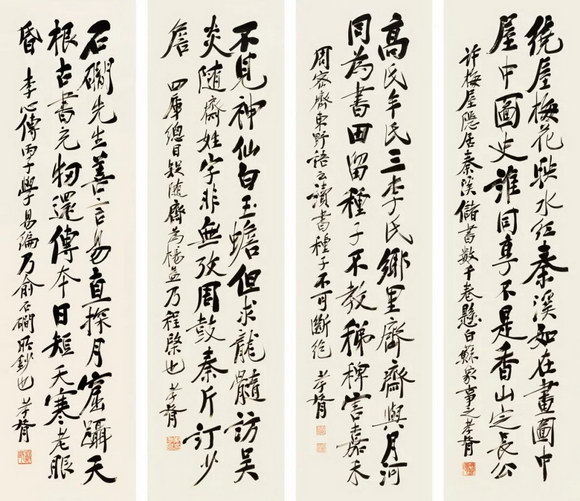 繞屋梅花映水紅秦溪如在畫圖中
屋中圖史誰同享不是香山定長公
許梅屋隱居秦溪儲書數千卷懸白蘇象事之孝胥
高氏牟氏三李氏鄉里齊齋與月河
同為書田留種子不教稊稗害嘉禾
周密齊東野語云讀書種子不可斷絕 孝胥
不見神仙白玉蟾但求龍髓訪吳
炎隨齋姓字非無攷周鼓秦斤訂少
詹 四庫總目隨齋為楊益乃程棨也 孝胥
石磵先生善言易直探月窟躡天
根古書還傳本日短天寒老眼
昏 李心傳丙子學易編乃俞石磵所鈔也 孝胥